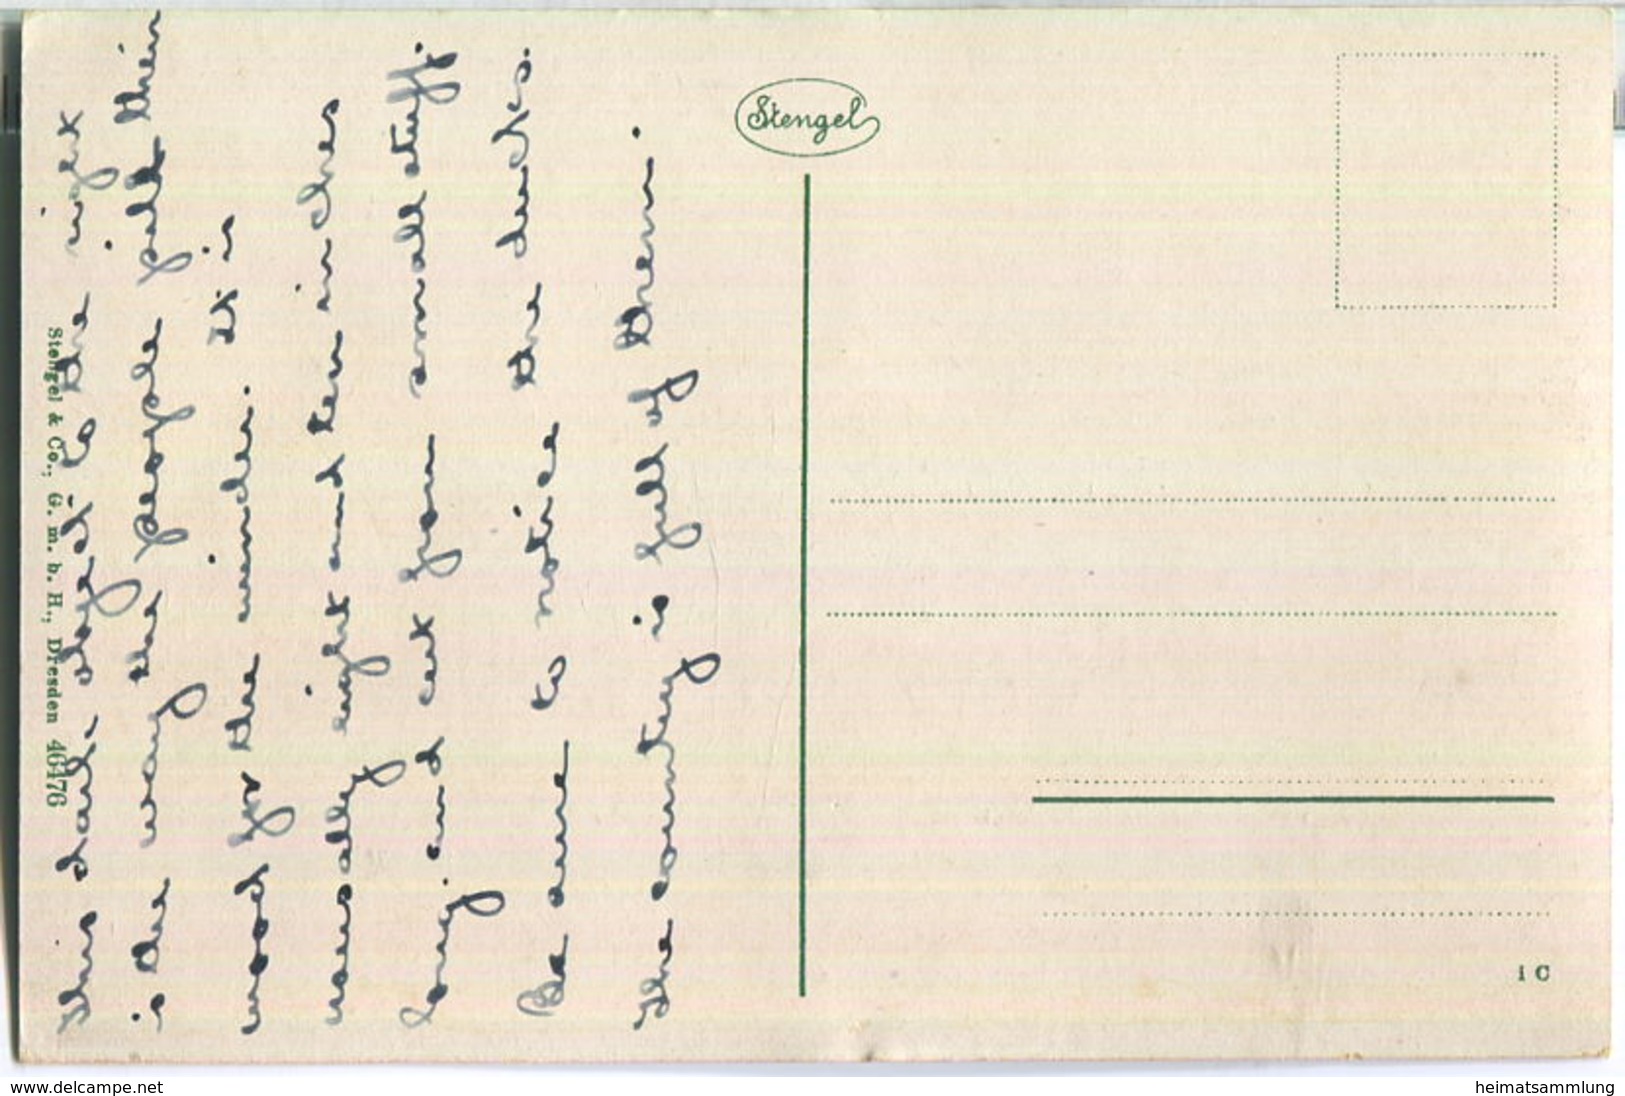 This dark object to the right
is the way the people pile their
wood for the winder. It is
usually eight and ten inches
long and cut from small stuff.
Be sure to notice the ducks.
The country is full of them.
Stengel & Co., G. m. b. H., Dresden 46476
Stengel
1 C
www.delcampe.net
heimatsammlung